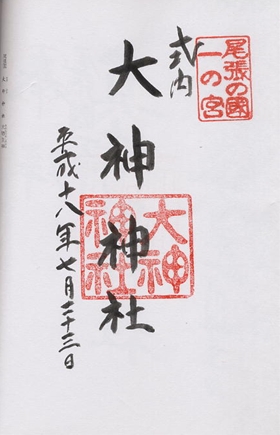 尾張の國
一の宮
式内
大神神社
大神
神社
平成十八年七月二十三日